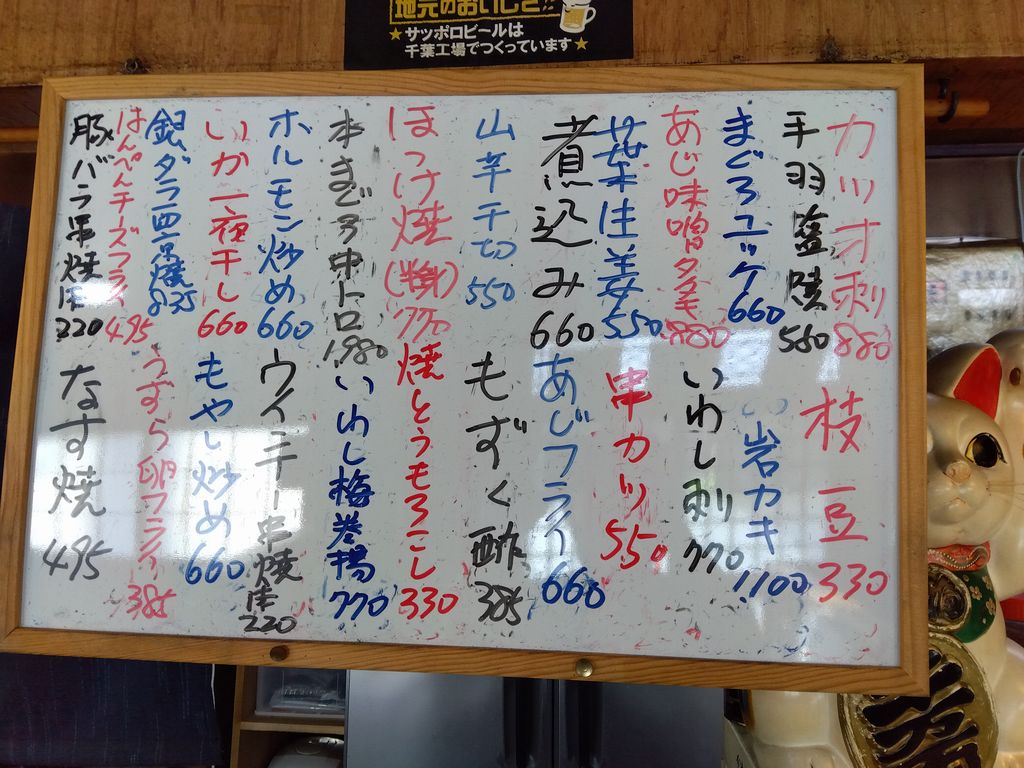 地元のおいしさ
★サッポロビールは
千葉工場でつくっています★
カツオ刺 880
手羽塩焼 550
まぐろユッケ 660
あじ味噌タタキ 880
葉生姜 550
煮込み 660
山芋千切 550
ほっけ焼
本まぐろ中トロ 1,980
ホルモン炒め 660
いか一夜干し 660
銀ダラ西京焼 935
はんぺんチーズフライ 495
豚バラ串焼 1本 220
枝豆 330
岩カキ 1100
いわし刺 770
串カツ 550
あじフライ 660
もずく酢 385
焼とうもろこし 330
いわし梅巻揚 770
ウインナー串焼 1本 220
もやし炒め 660
うずら卵フライ 385
なす焼 495